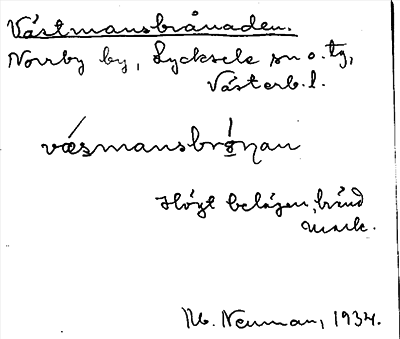 Västmansbrånaden.
Norrby by, Lycksele sn o. tg,
Västerb. l.
Högt belägen, bränd
mark.
M. Neuman, 1934.